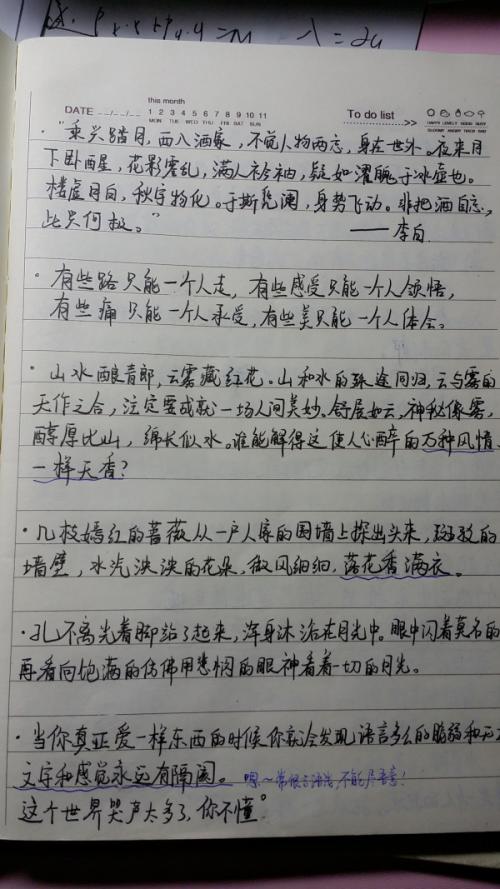 this month
DATE __/__/__ 1 2 3 4 5 6 7 8 9 10 11
MON TUE WED THU FRI SAT SUN
To do list
HAPPY LOVELY GOOD BUSY
GLOOMY ANGRY TIRED SAD
·"乘兴踏月,西入酒家,不觉人物两忘,身在世外。夜来月
下卧醒,花影零乱,满人衿袖,疑如濯魄于冰壶也。
楼虚月白,秋宇物化。于斯凭阑,身势飞动。非把酒自忘,
此兴何极。"
——李白
·有些路只能一个人走,有些感受只能一个人领悟,
有些痛只能一个人承受,有些美只能一个人体会。
·山水酿青郎,云雾藏红花。山和水的殊途同归,云与雾的
天作之合,注定要成就一场人间美妙。舒展如云,神秘像雾,
醇厚比山,绵长似水。谁能解得这使人心醉的万种风情
一样天香?
·几枝嫣红的蔷薇从一户人家的围墙上探出头来,斑驳的
墙壁,水汽泱泱的花朵,微风细细,落花香满衣。
·孔不离光着脚站了起来,浑身沐浴在月光中。眼中闪着莫名的
再看向饱满的仿佛用悲悯的眼神看着一切的月光。
·当你真正爱一样东西的时候你就会发现语言多么的脆弱和无
文字和感觉永远有隔阂。嗯~常恨言语浅,不能尽语意!
这个世界哭声太多了,你不懂。